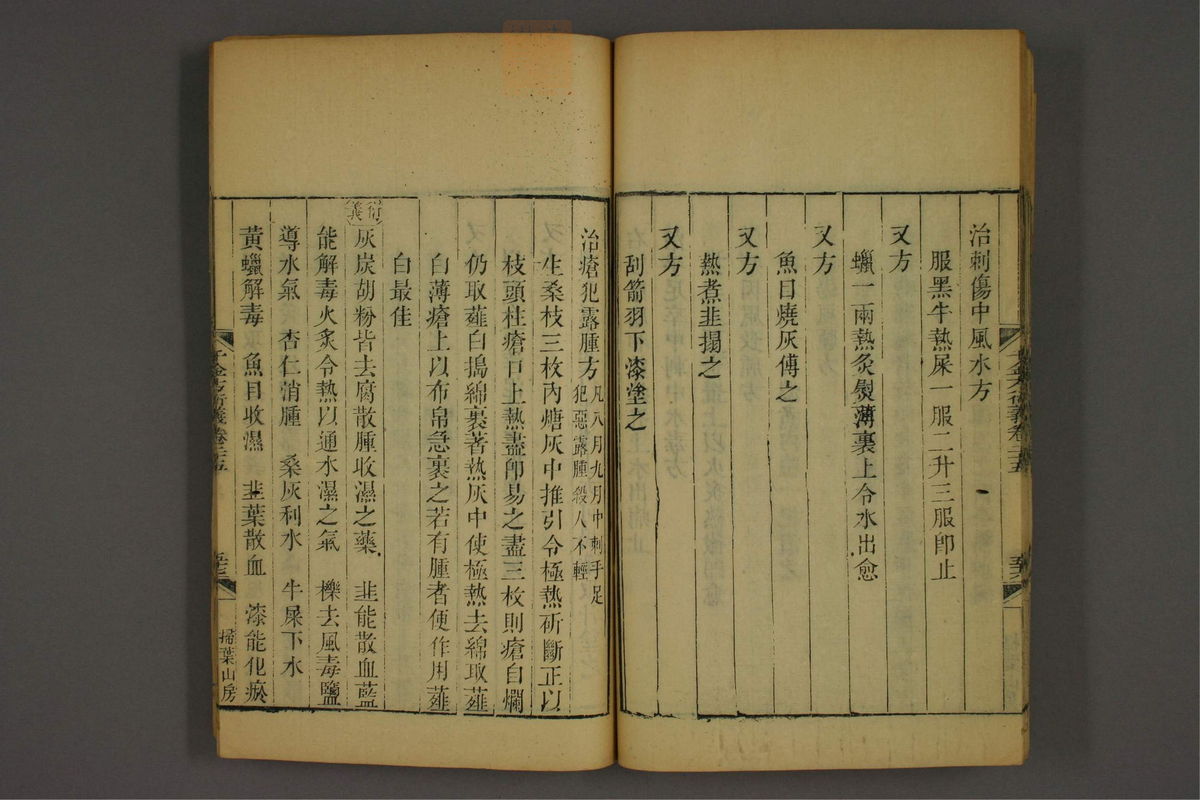 治刺傷中風水方
服黑牛熱屎一服二升三服卽止
又方
蠟一兩熱灸熨薄裏上令水出愈
又方
魚目燒灰傅之
又方
熱煮韭搨之
又方
刮箭羽下漆塗之
治瘡犯露腫方凡八月九月中刺手足
犯惡露腫殺人不輕
生桑枝三枚內煻灰中推引令極熱斫斷正以
枝頭柱瘡口上熱盡卽易之盡三枚則瘡自爛
仍取薤白搗綿裹著熱灰中使極熱去綿取薤
白薄瘡上以布帛急裹之若有腫者便作用薤
白最佳
衍義
灰炭胡粉皆去腐散腫收濕之藥 韭能散血藍
能解毒火炙令熱以通水濕之氣 櫟去風毒鹽
導水氣 杏仁消腫 桑灰利水 牛屎下水
黃蠟解毒 魚目收濕 韭葉散血 漆能化瘀
千金方衍義卷二十五
掃葉山房